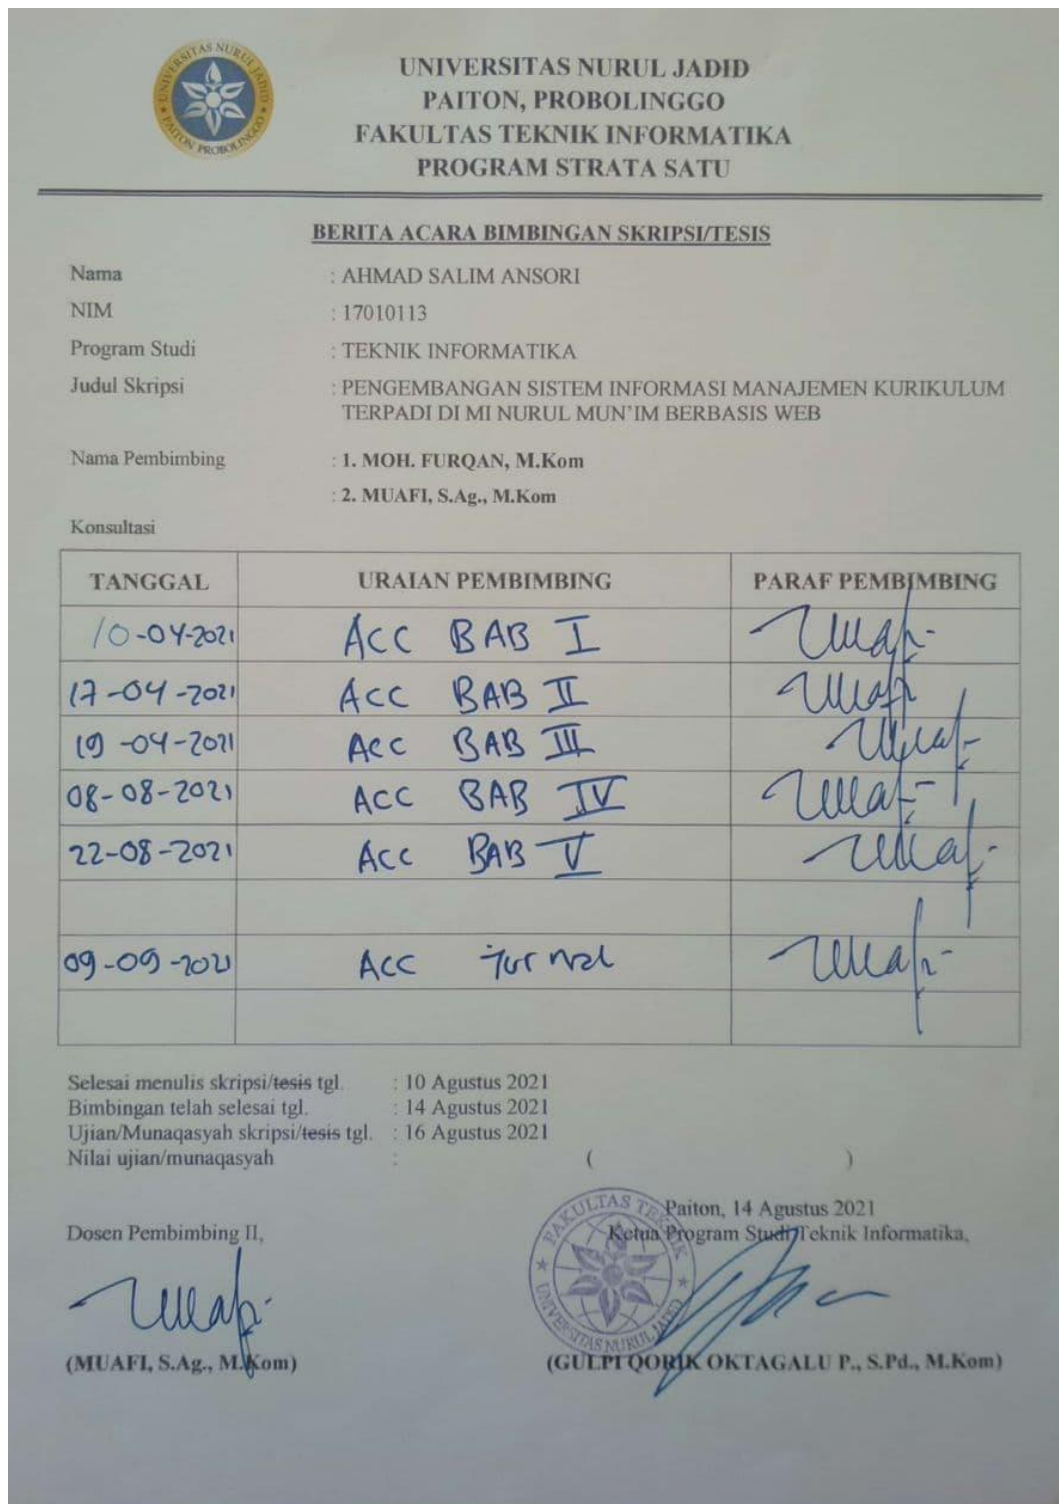 UNIVERSITAS NURUL JADID
PAITON PROBOLINGGO
UNIVERSITAS NURUL JADID
PAITON, PROBOLINGGO
FAKULTAS TEKNIK INFORMATIKA
PROGRAM STRATA SATU
BERITA ACARA BIMBINGAN SKRIPSI/TESIS
Nama : AHMAD SALIM ANSORI
NIM : 17010113
Program Studi : TEKNIK INFORMATIKA
Judul Skripsi : PENGEMBANGAN SISTEM INFORMASI MANAJEMEN KURIKULUM
TERPADI DI MI NURUL MUN'IM BERBASIS WEB
Nama Pembimbing : 1. MOH. FURQAN, M.Kom
: 2. MUAFI, S.Ag., M.Kom
Konsultasi
TANGGAL URAIAN PEMBIMBING PARAF PEMBIMBING
10-04-2021 ACC BAB I
17-04-2021 ACC BAB II
19-04-2021 ACC BAB III
08-08-2021 ACC BAB IV
22-08-2021 ACC BAB V
09-09-2021 ACC jurnal
Selesai menulis skripsi/tesis tgl. : 10 Agustus 2021
Bimbingan telah selesai tgl. : 14 Agustus 2021
Ujian/Munaqasyah skripsi/tesis tgl. : 16 Agustus 2021
Nilai ujian/munaqasyah : ( )
Paiton, 14 Agustus 2021
Dosen Pembimbing II, Ketua Program Studi Teknik Informatika,
FAKULTAS TEKNIK
UNIVERSITAS NURUL JADID
(MUAFI, S.Ag., M.Kom) (GULPI QORIK OKTAGALU P., S.Pd., M.Kom)